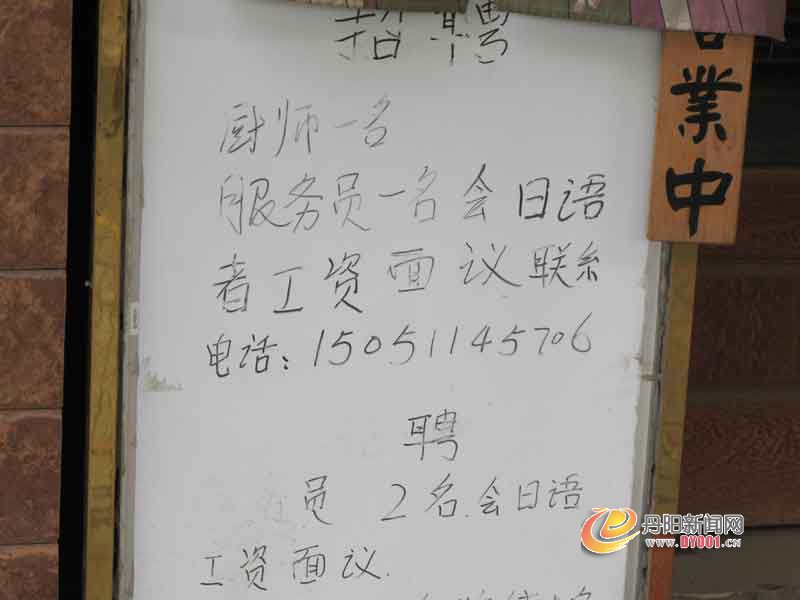 招聘
厨师一名
服务员一名会日语
者工资面议联系
电话:15051145706
聘
员 2名.会日语
工资面议.
業中
丹阳新闻网
WWW.DY001.CN